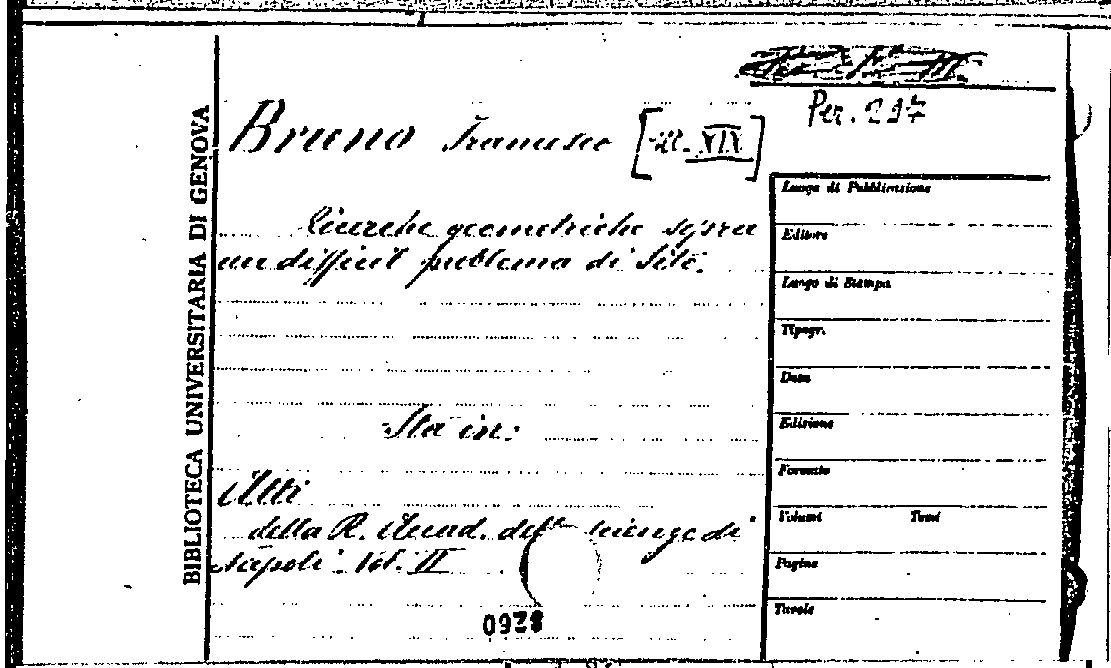 Per. 297
Bruno Francesco [sec. XIX]
Ricerche geometriche sopra
un difficil problema di sito.
Sta in:
Atti
della R. Accad. delle scienze di
Napoli. Vol. II
0928
BIBLIOTECA UNIVERSITARIA DI GENOVA
Luogo di Pubblicazione
Editore
Luogo di Stampa
Tipogr.
Data
Edizione
Formato
Volumi Tomi
Pagine
Tavole